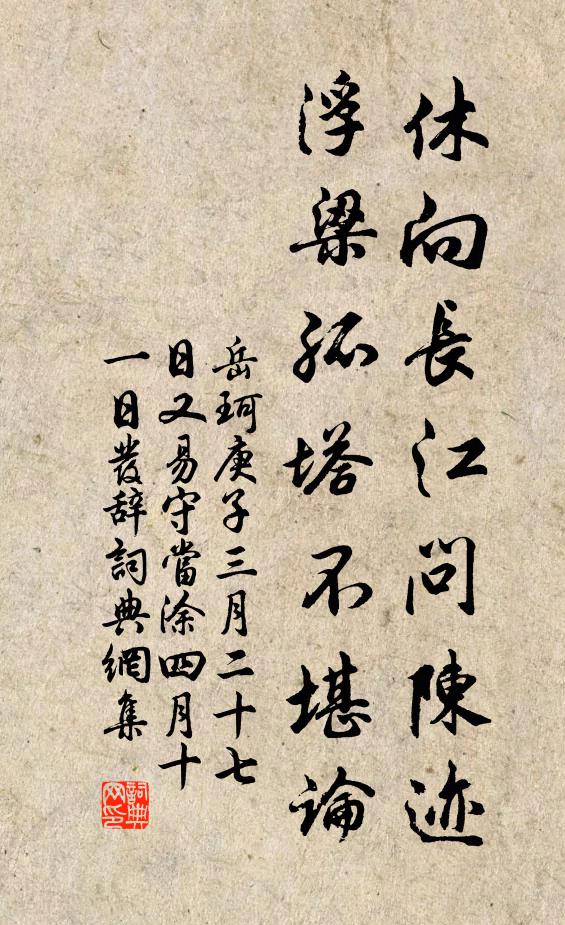 休向長江問陳迹
浮梁孤塔不堪論
岳珂庚子三月二十七
日又易守當涂四月十
一日發辞詞典網集
詞典
网印